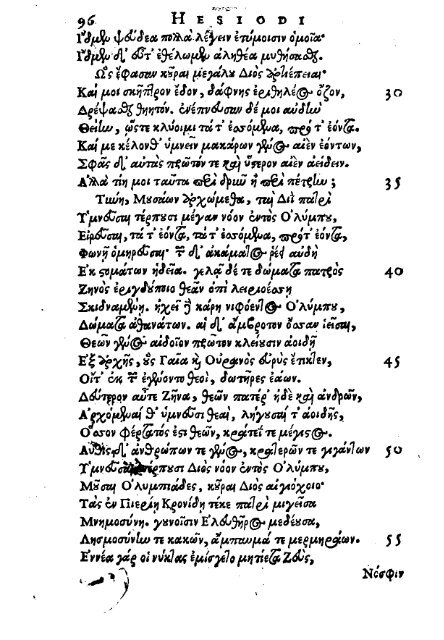 96 HESIODI
Ἴδμεν ψεύδεα πολλὰ λέγειν ἐτύμοισιν ὁμοῖα·
Ἴδμεν δ᾽ εὖτ᾽ ἐθέλωμεν ἀληθέα μυθήσασθαι.
Ὣς ἔφασαν κῦραι μεγάλου Διὸς ἀρτιέπειαι·
Καί μοι σκῆπτρον ἔδον, δάφνης ἐριθηλέος ὄζον, 30
Δρέψασθαι θηητόν. ἐνέπνευσαν δέ μοι αὐδὴν
Θείην, ὥστε κλύοιμι τά τ᾽ ἐσόμενα, πρό τ᾽ ἐόντα.
Καί με κέλονθ᾽ ὑμνεῖν μακάρων γένος αἰὲν ἐόντων,
Σφᾶς δ᾽ αὐτὰς πρῶτόν τε καὶ ὕστερον αἰὲν ἀείδειν.
Ἀλλὰ τίη μοι ταῦτα περὶ δρυῦ ἢ περὶ πέτρην; 35
Τύνη, Μυσάων ἀρχώμεθα, ταὶ Διὶ πατρὶ
Ὑμνεῦσαι τέρπυσι μέγαν νόον ἐντὸς Ὀλύμπυ,
Εἰρεῦσαι, τά τ᾽ ἐόντα, τά τ᾽ ἐσόμενα, πρό τ᾽ ἐόντα,
Φωνῇ ὁμηρεῦσαι· τῶν δ᾽ ἀκάματος ῥέει αὐδὴ
Ἐκ στομάτων ἡδεῖα. γελᾷ δέ τε δώματα πατρὸς 40
Ζηνὸς ἐριγδύποιο θεᾶν ὀπὶ λειριοέσσῃ
Σκιδναμένη. ἠχεῖ ἢ κάρη νιφόεντος Ὀλύμπυ,
Δώματα ἀθανάτων. αἱ δ᾽ ἄμβροτον ὄσσαν ἱεῖσαι,
Θεῶν γένος αἰδοῖον πρῶτον κλείυσιν ἀοιδῇ
Ἐξ ἀρχῆς, ὓς Γαῖα καὶ Οὐρανὸς εὐρὺς ἔτικτεν, 45
Οἵ τ᾽ ἐκ τῶν ἐγένοντο θεοὶ, δωτῆρες ἐάων.
Δεύτερον αὖτε Ζῆνα, θεῶν πατέρ᾽ ἠδὲ καὶ ἀνδρῶν,
Ἀρχόμεναί θ᾽ ὑμνεῦσι θεαὶ, λήγυσί τ᾽ ἀοιδῆς,
Ὅσσον φέρτατός ἐστι θεῶν, κράτεΐ τε μέγιστος.
Αὖθις δ᾽ ἀνθρώπων τε γένος, κρατερῶν τε γιγάντων 50
Ὑμνεῦσαι τέρπυσι Διὸς νόον ἐντὸς Ὀλύμπυ,
Μῦσαι Ὀλυμπιάδες, κῦραι Διὸς αἰγιόχοιο·
Τὰς ἐν Πιερίῃ Κρονίδῃ τέκε πατρὶ μιγεῖσα
Μνημοσύνη. γυνοῖσιν Ἐλευθῆρος μεδέυσα,
Λησμοσύνην τε κακῶν, ἄμπαυμά τε μερμηράων. 55
Ἐννέα γάρ οἱ νύκτας ἐμίσγετο μητίετα Ζεὺς,
Νόσφιν